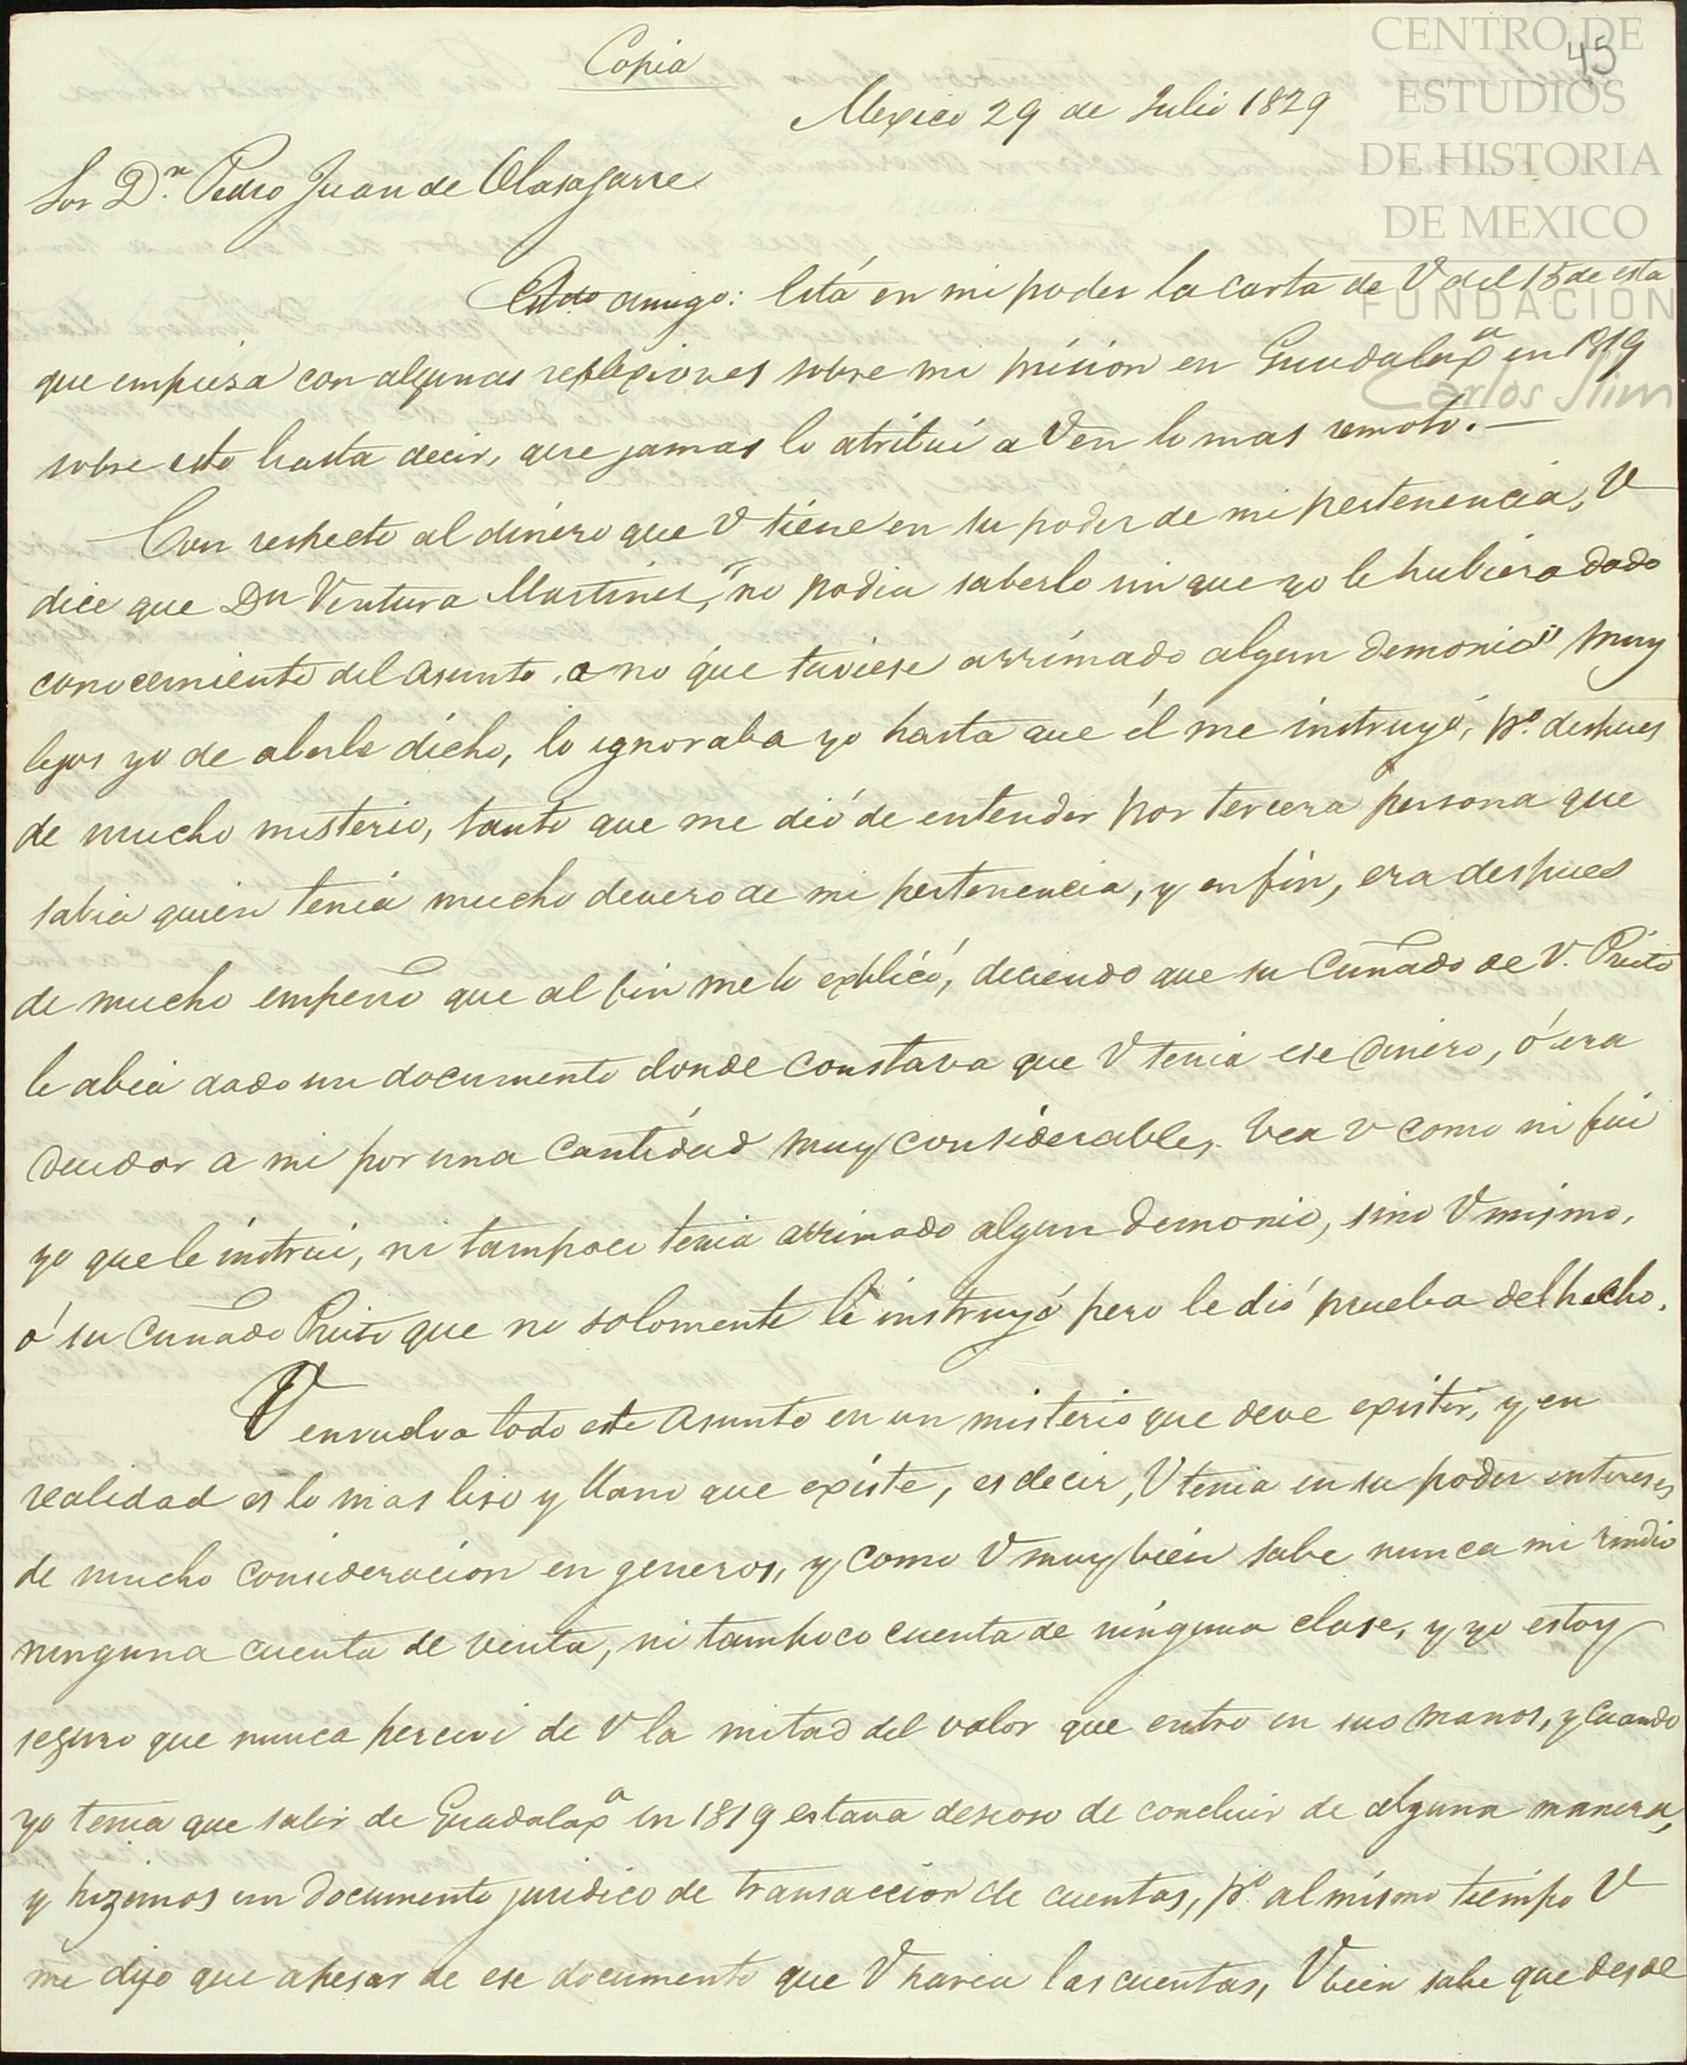 Copia
45
CENTRO DE
ESTUDIOS
DE HISTORIA
DE MEXICO
FUNDACIÓN
Carlos Slim
Mexico 29 de Julio 1829
Sor Dn. Pedro Juan de Olasagarre
amigo: Está en mi poder la carta de V del 15 de esta
que empiesa con algunas reflexiones sobre mi prision en Guadalaxa en 1819
sobre esto basta decir, que jamas lo atribui a V en lo mas remoto. —
Con respecto al dinero que V tiene en su poder de mi pertenencia, V
dice que Dn Ventura Martines, "no podia saberlo sin que yo le hubiera dado
conocemiento del asunto, a no que tuviese arrimado algun demonio" muy
lejos yo de aberle dicho, lo ignoraba yo hasta que él me instruyó, po. despues
de mucho misterio, tanto que me dió de entender por tercera persona que
sabia quien tenia mucho denero de mi pertenencia, y en fin, era despues
de mucho empeño que al fin me lo explicó, deciendo que su Cuñado de V. Prieto
le abia dado un documento donde constava que V tenia ese dinero, ó era
deudor a mi por una cantidad muy considerable, vea V como ni fui
yo que le instrui, ni tampoco tenia arrimado algun demonio, sino V mismo,
ó su Cuñado Prieto que no solomente le instruyó pero le dió prueba del hecho.
V envuelva todo este asunto en un misterio que deve existir, y en
realidad es lo mas liso y llano que existe, es decir, V tenia en su poder intereses
de mucho consideracion en generos, y como V muy bien sabe nunca mi rindio
ninguna cuenta de venta, ni tampoco cuenta de ninguna clase, y yo estoy
seguro que nunca percevi de V la mitad del valor que entro en sus manos, y cuando
yo tenia que salir de Guadalaxa en 1819 estava deseoso de concluir de alguna manera,
y hizemos un documento juridico de transaccion de cuentas, po. al mismo tiempo V
me dijo que apesar de ese documento que V haria las cuentas, V bien sabe que desde